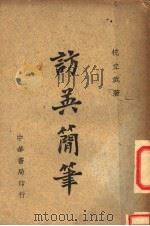 杭立武著
訪英簡筆
中華書局印行